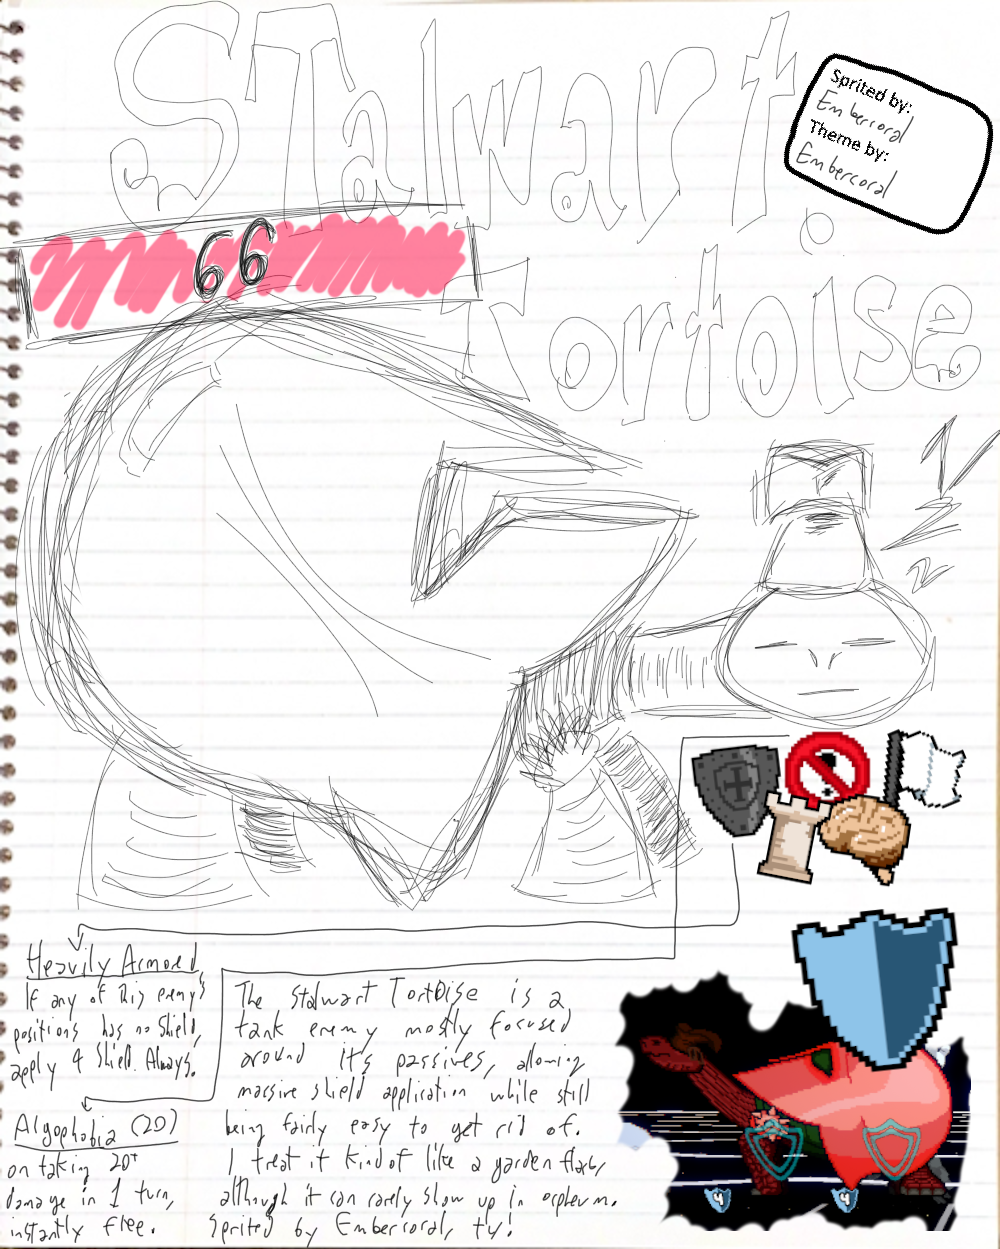 Stalwart
Tortoise
Sprited by:
Embercoral
Theme by:
Embercoral
66
Heavily Armored
If any of this enemy's
positions has no Shield,
apply 4 Shield. Always.
Algophobia (20)
on taking 20+
damage in 1 turn,
instantly flee.
The Stalwart Tortoise is a
tank enemy mostly focused
around it's passives, allowing
massive shield application while still
being fairly easy to get rid of.
I treat it kind of like a garden
although it can rarely show up in orpheum.
Sprited by Embercoral, ty!
4
4